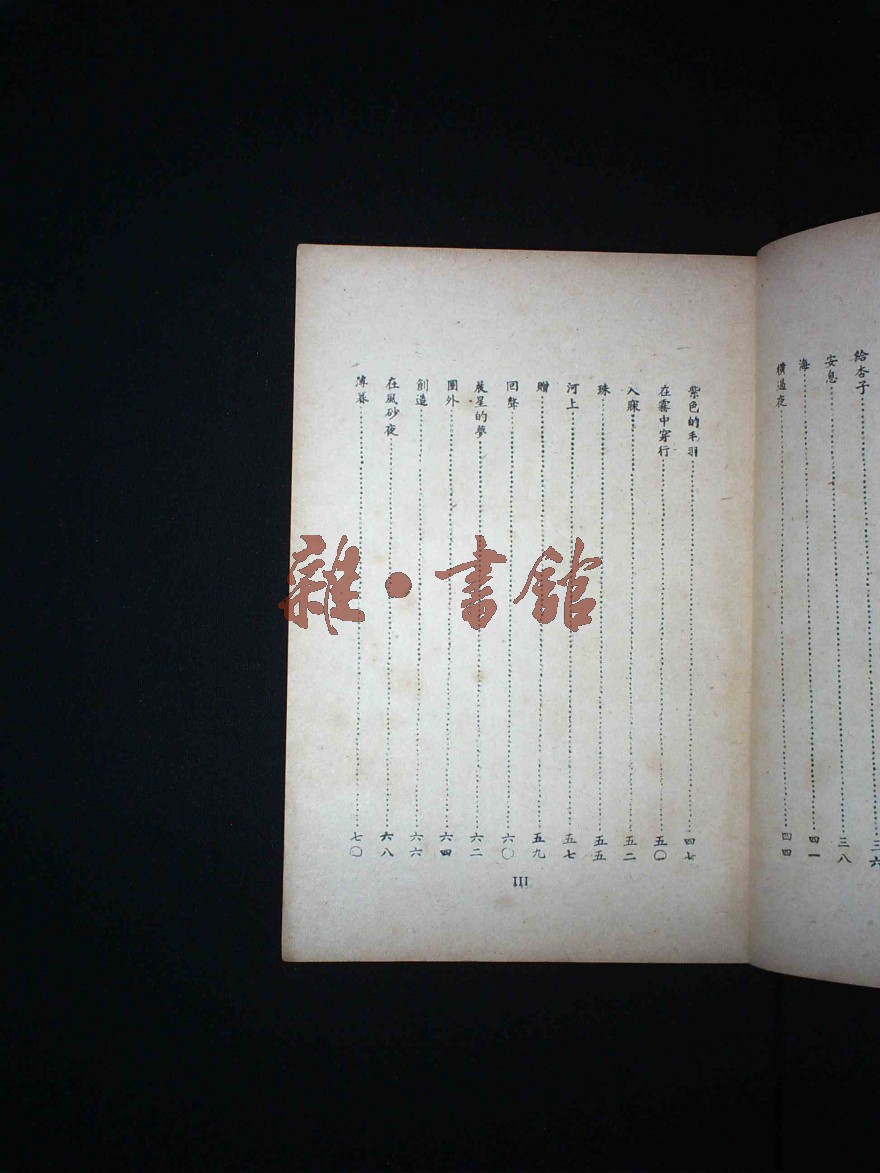 給杏子……三六
安息……三八
海……四一
橫過夜……四四
紫色的毛羽……四七
在霧中穿行……五〇
入寐……五二
珠……五五
河上……五七
贈……五九
回聲……六〇
晨星的夢……六二
圈外……六四
創造……六六
在風砂夜……六八
薄暮……七〇
III
雜·書館